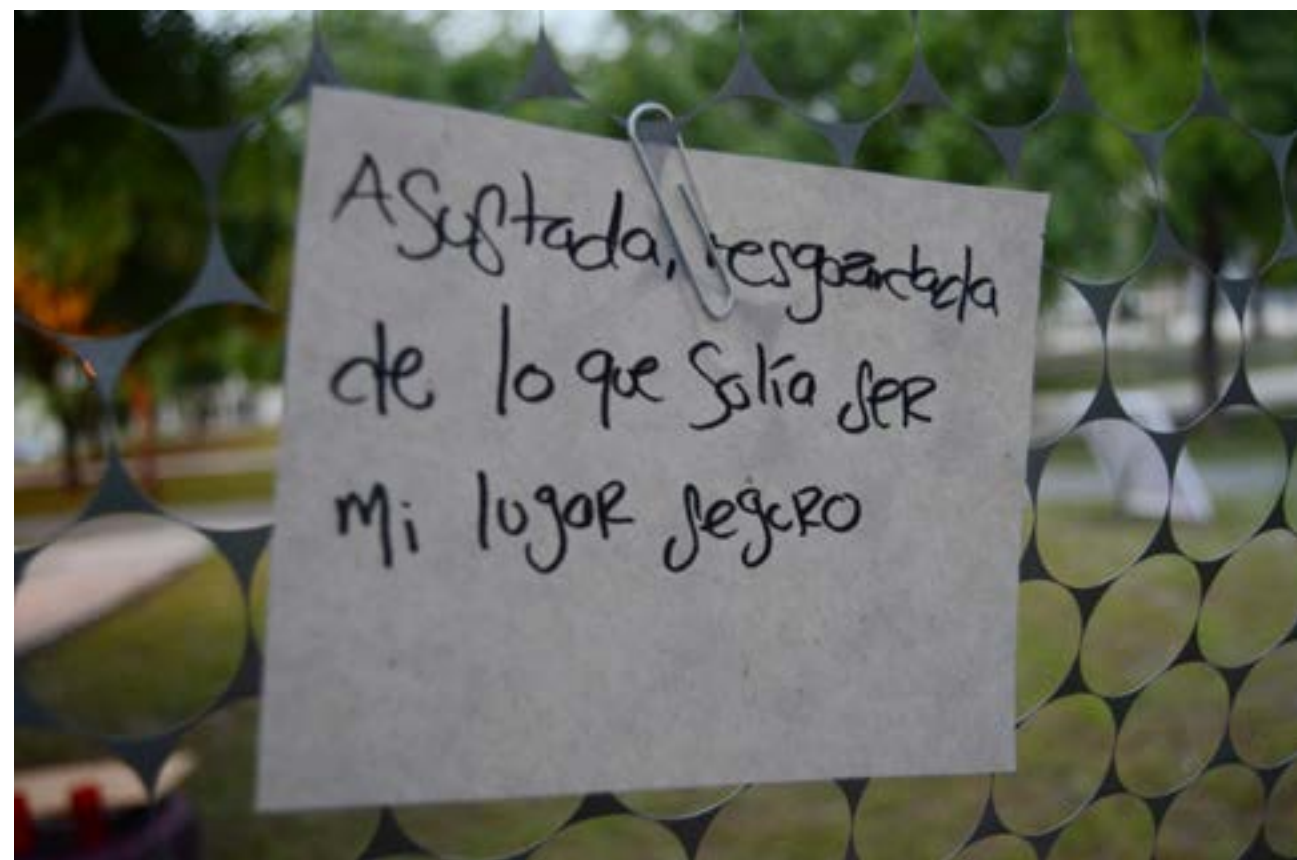 Asustada, resguardada
de lo que solía ser
mi lugar seguro